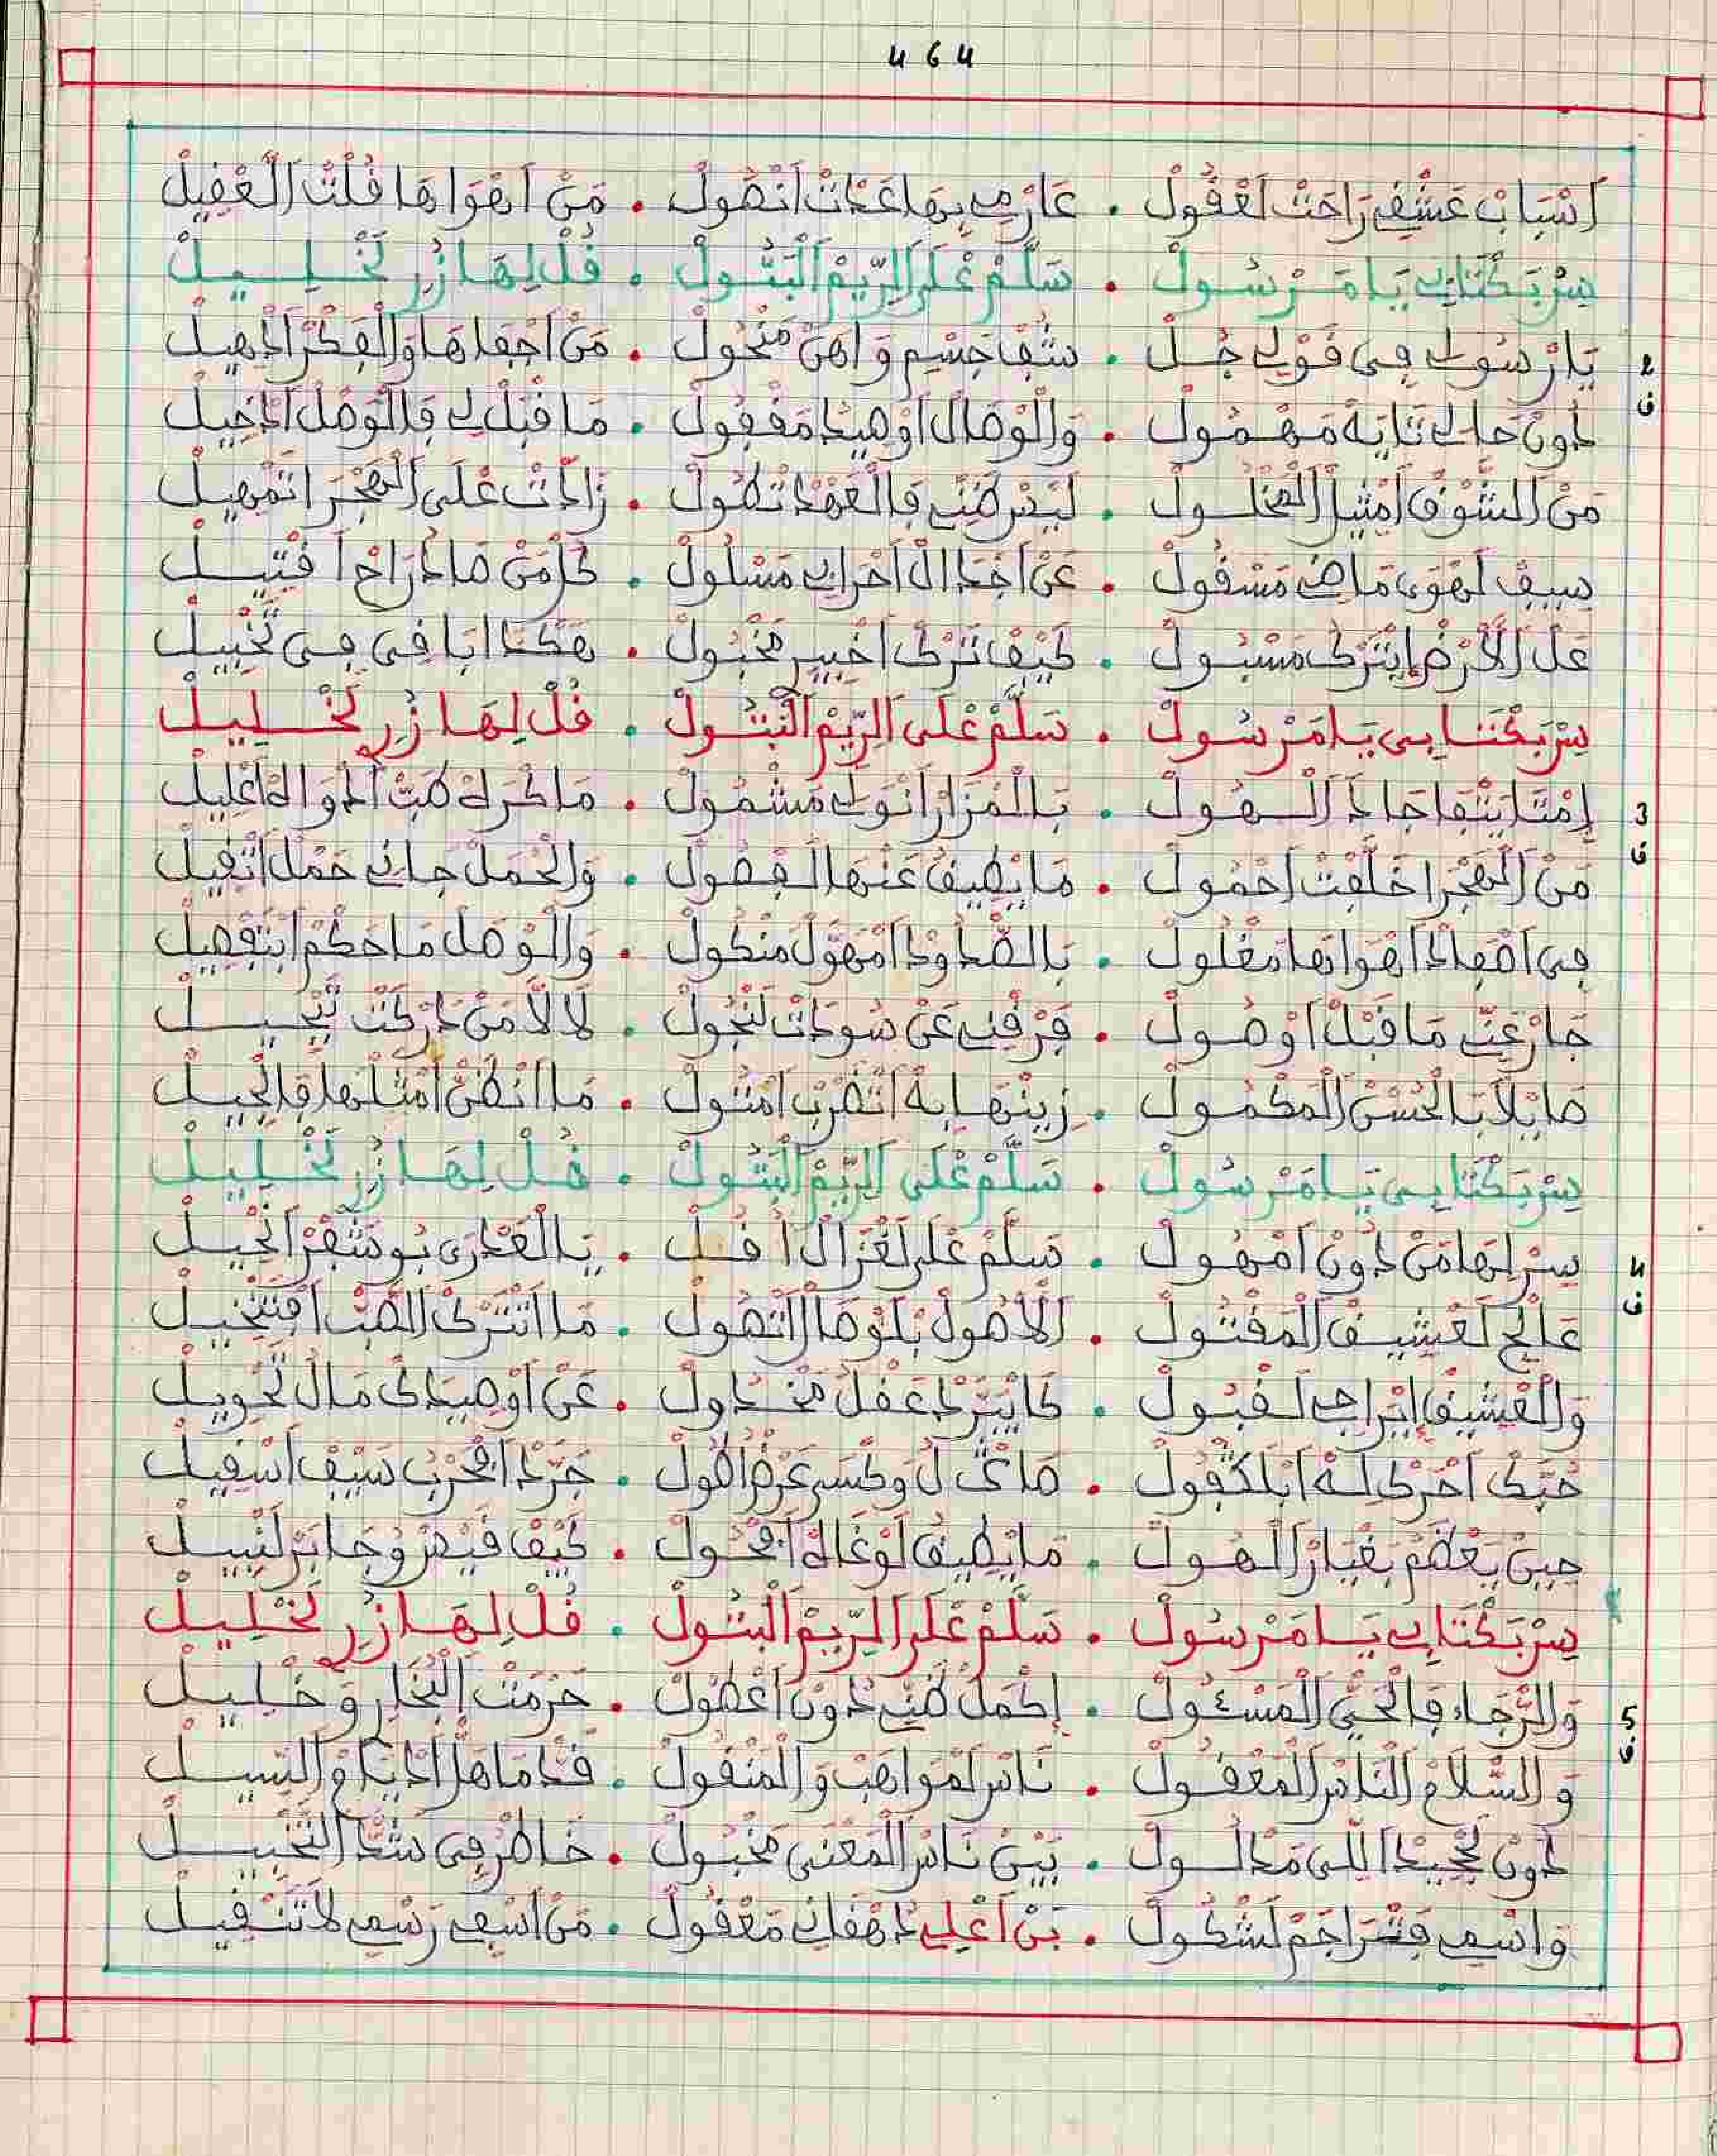 464
أسباب عشقي راحت لعقول . عارم بها غدات أتصول . من أهواها قلت العقيل
سر بكتابي يا مرسول . سلم على الريم البتول . قل لها زر لخليل
2 ف
يا رسولي في قولي جل . شف جسمي واهن منحول . من اجفاها والفكر اذهيل
دون حالي تايه مهمول . والوصال أوصيد مقفول . ما قبل لي فالوصل ادخيل
من الشوق أمثيل المخلول . ليس ظني فالعهد تطول . زادت على الهجر اتمهيل
سيف لهوى ماضي مسقول . عن اجدال احرابي مسلول . كل من صادر راح اقتيل
عل الأرض ايترك مسبول . كيف نترك اخبير مخبول . هكذا باقي في تخبيل
سر بكتابي يا مرسول . سلم على الريم البتول . قل لها زر لخليل
3 ف
إمتا يتفاجا ذا الهول . بالمزار أنولي مشمول . ما كره طب الدواله اعليل
من الهجر اخلفت احمول . ما يطيق عنها الفضول . والحمل جاني حمل اثقيل
في اصفاد اهواها مغلول . بالصدود امهول منكول . والوصل ما حكم ابتفصيل
جار عني ما قبل اوصول . فرقني عن سودات لنجول . لا لا من دركت تجيل
صايلا بالحسن المكمول . زينها به اتضرب امثول . ما انظن امثلها فالجيل
سر بكتابي يا مرسول . سلم على الريم البتول . قل لها زر لخليل
4 ف
سر لها من دون امهول . سلم على لغزال اقل . يا العذرى بو شفر اكحيل
عالج لعشيق المفتول . الاصول بلوصال اتصول . ما اتترك الصب افتنخيل
والعشيق ايراجي لقبول . كا يترد عقل مخدول . عن اوصيدك مال تحويل
حبك احرك له ابلكفول . صاك ل وكسى عرض الطول . جرد الحرب سيف اسقيل
حين يعظم بغبار الهول . ما يطيق لوغاه افحول . كيف قيس وجابر لنيسل
سر بكتابي يا مرسول . سلم على الريم البتول . قل لها زر لخليل
5 ف
والرجاء فالحي المسئول . إكمل ظني دون اعطول . حرمت البخاري وخليل
والسلام الناس المعقول . ناس لمواهب والمنقول . قد ما هل اديام والسيل
دون لجحيد اللي مدلول . بين ناس المعنى مخبول . خاطر في شد التخبيل
واسمي فتراجم لشكول . بن اعلي دهقاني معقول . من اسفي رسمي لا تنقيل